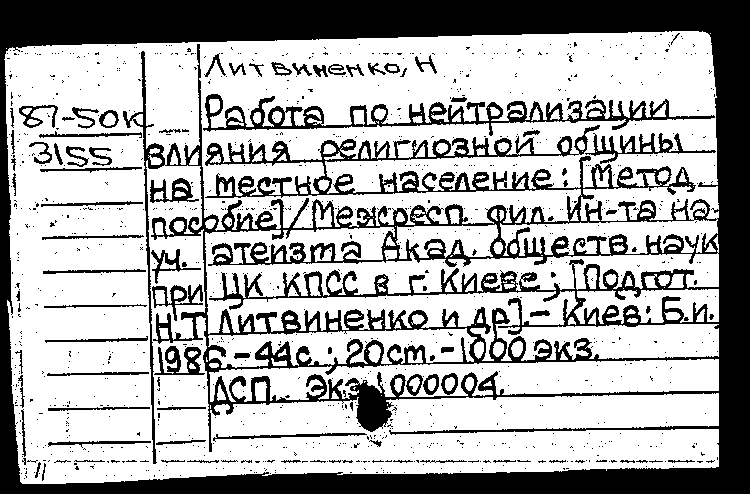 Литвиненко, Н
87-50к Работа по нейтрализации
3155 влияния религиозной общины
на местное население: [Метод.
пособие]/Межресп. фил. Ин-та на-
уч. атеизма Акад. обществ. наук
при ЦК КПСС в г. Киеве; [Подгот.
Н.Т Литвиненко и др].- Киев: Б.и.,
1986.-44с.; 20см.-1000 экз.
ДСП. Экз 000004.
11